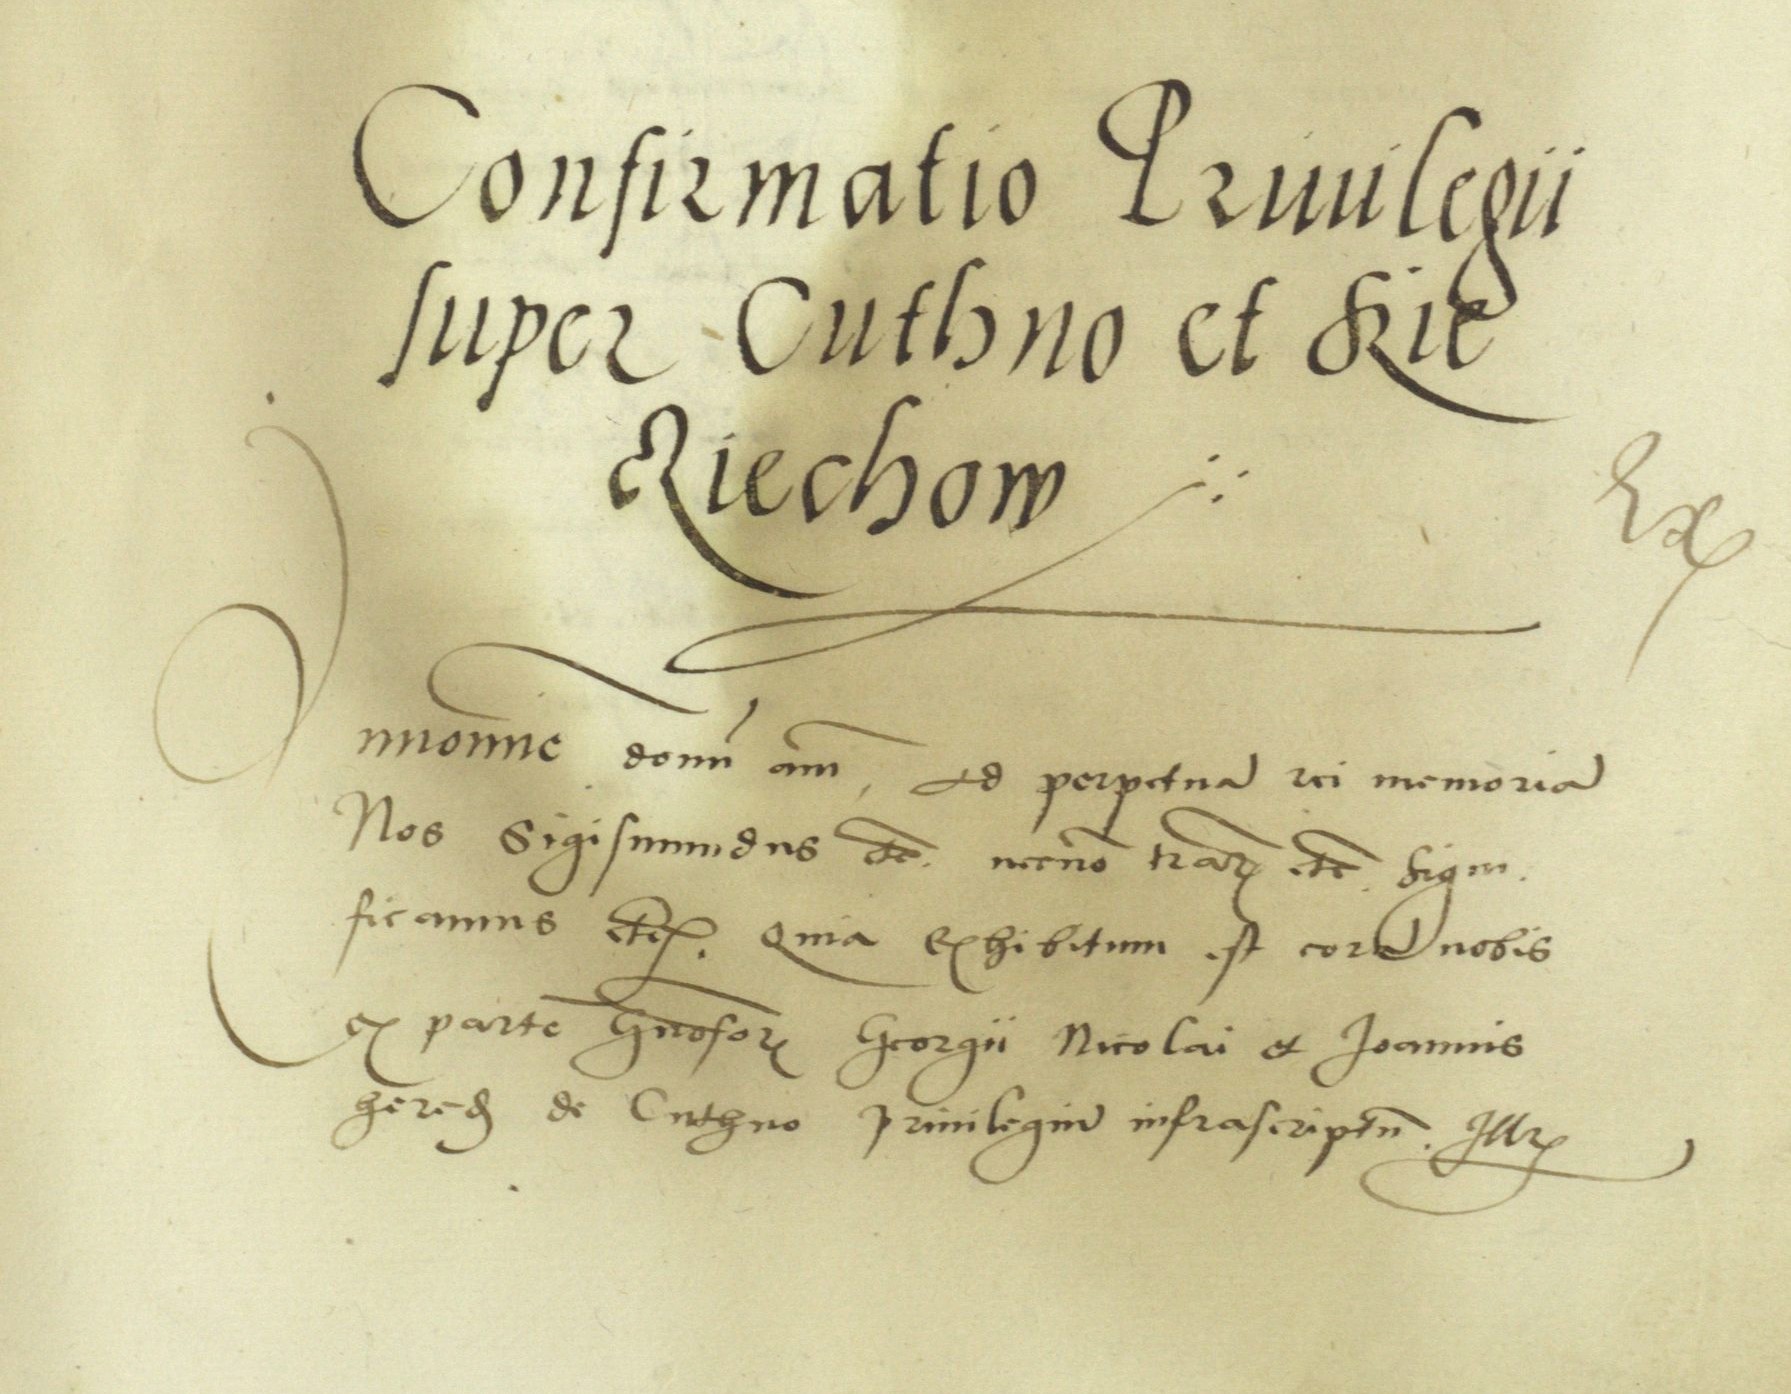 Confirmatio Priuilegii
super Cuthno et Kie
Riechow
Ex
In nomine domi am, Ad perpetua rei memoria
Nos Sigismundus etc. necno trar etc. signi
ficamus etc. Quia exhibitum est cora nobis
ex parte Gnosor Georgii Nicolai et Joannis
hered de Cuthno priuilegiu infrascriptu.